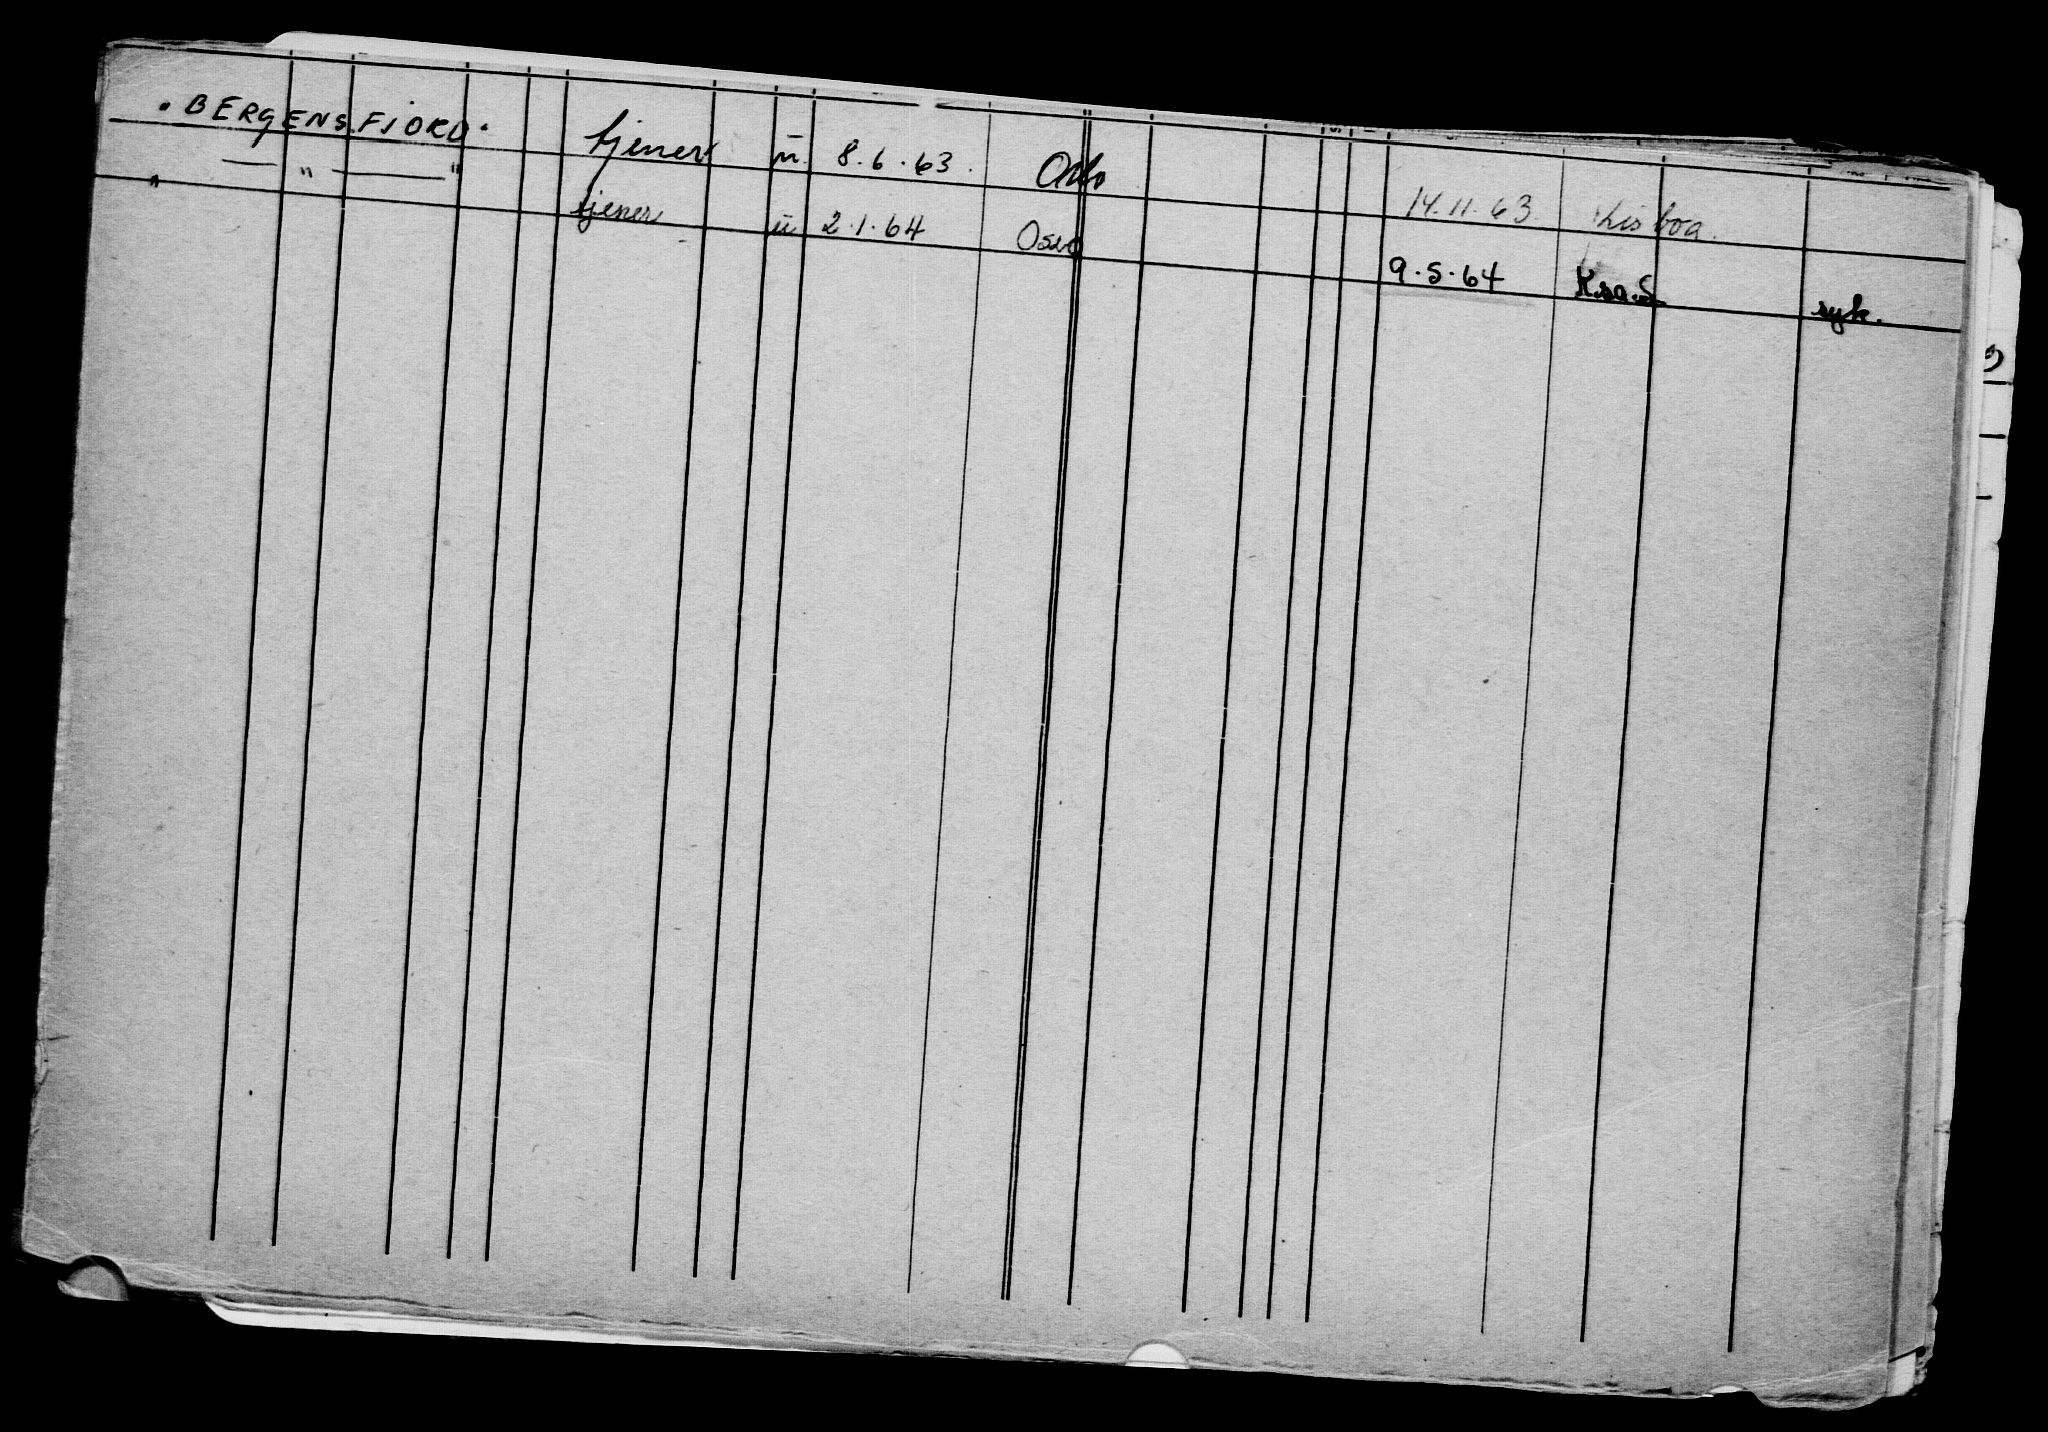 "BERGENSFJORD" tjener u. 8.6.63. Oslo 14.11.63 Lisboa.
" — " — " tjener u 2.1.64 Oslo 9.5.64 syk.